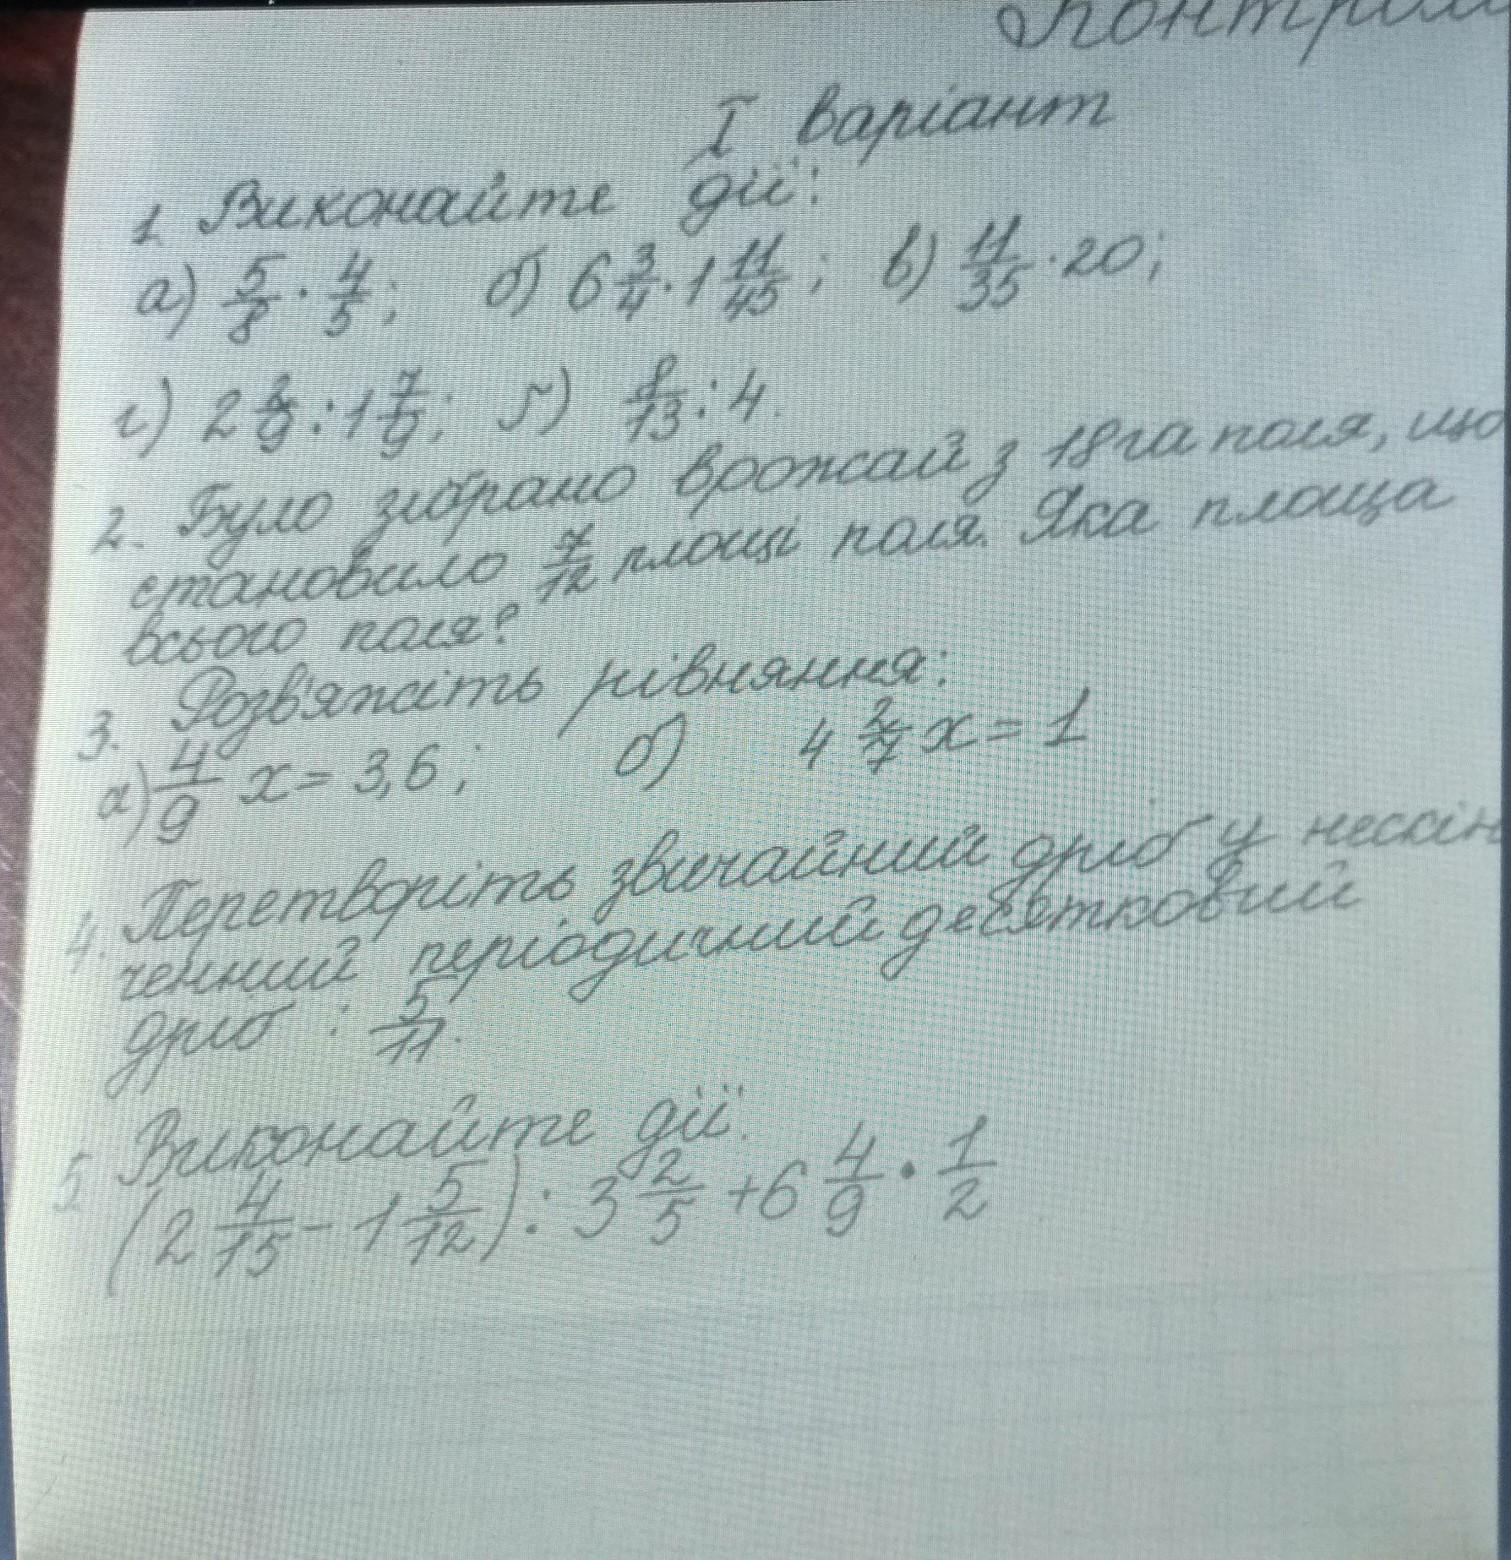 Контрол
I варіант
1. Виконайте дії:
а) 5/8 · 4/5; б) 6 3/4 · 1 11/45; в) 11/35 · 20;
г) 2 2/9 : 1 7/9; ґ) 8/13 : 4.
2. Було зібрано врожай з 18 га поля, що
становило 7/12 площі поля. Яка площа
всього поля?
3. Розв'яжіть рівняння:
а) 4/9 x = 3,6; б) 4 2/7 x = 1
4. Перетворіть звичайний дріб у нескін
ченний періодичний десятковий
дріб : 5/11.
5. Виконайте дії.
(2 4/15 - 1 5/12) : 3 2/5 + 6 4/9 · 1/2